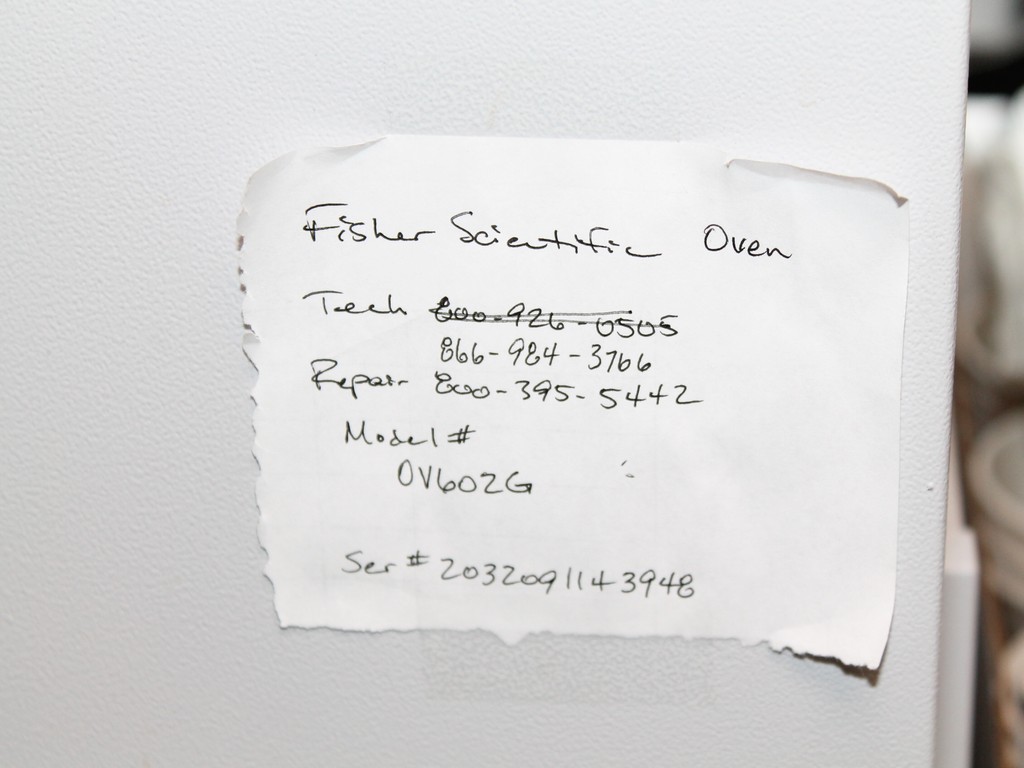 Fisher Scientific Oven
Tech 800-926-0505
866-984-3766
Repair 800-395-5442
Model #
OV602G
Ser # 2032091143948